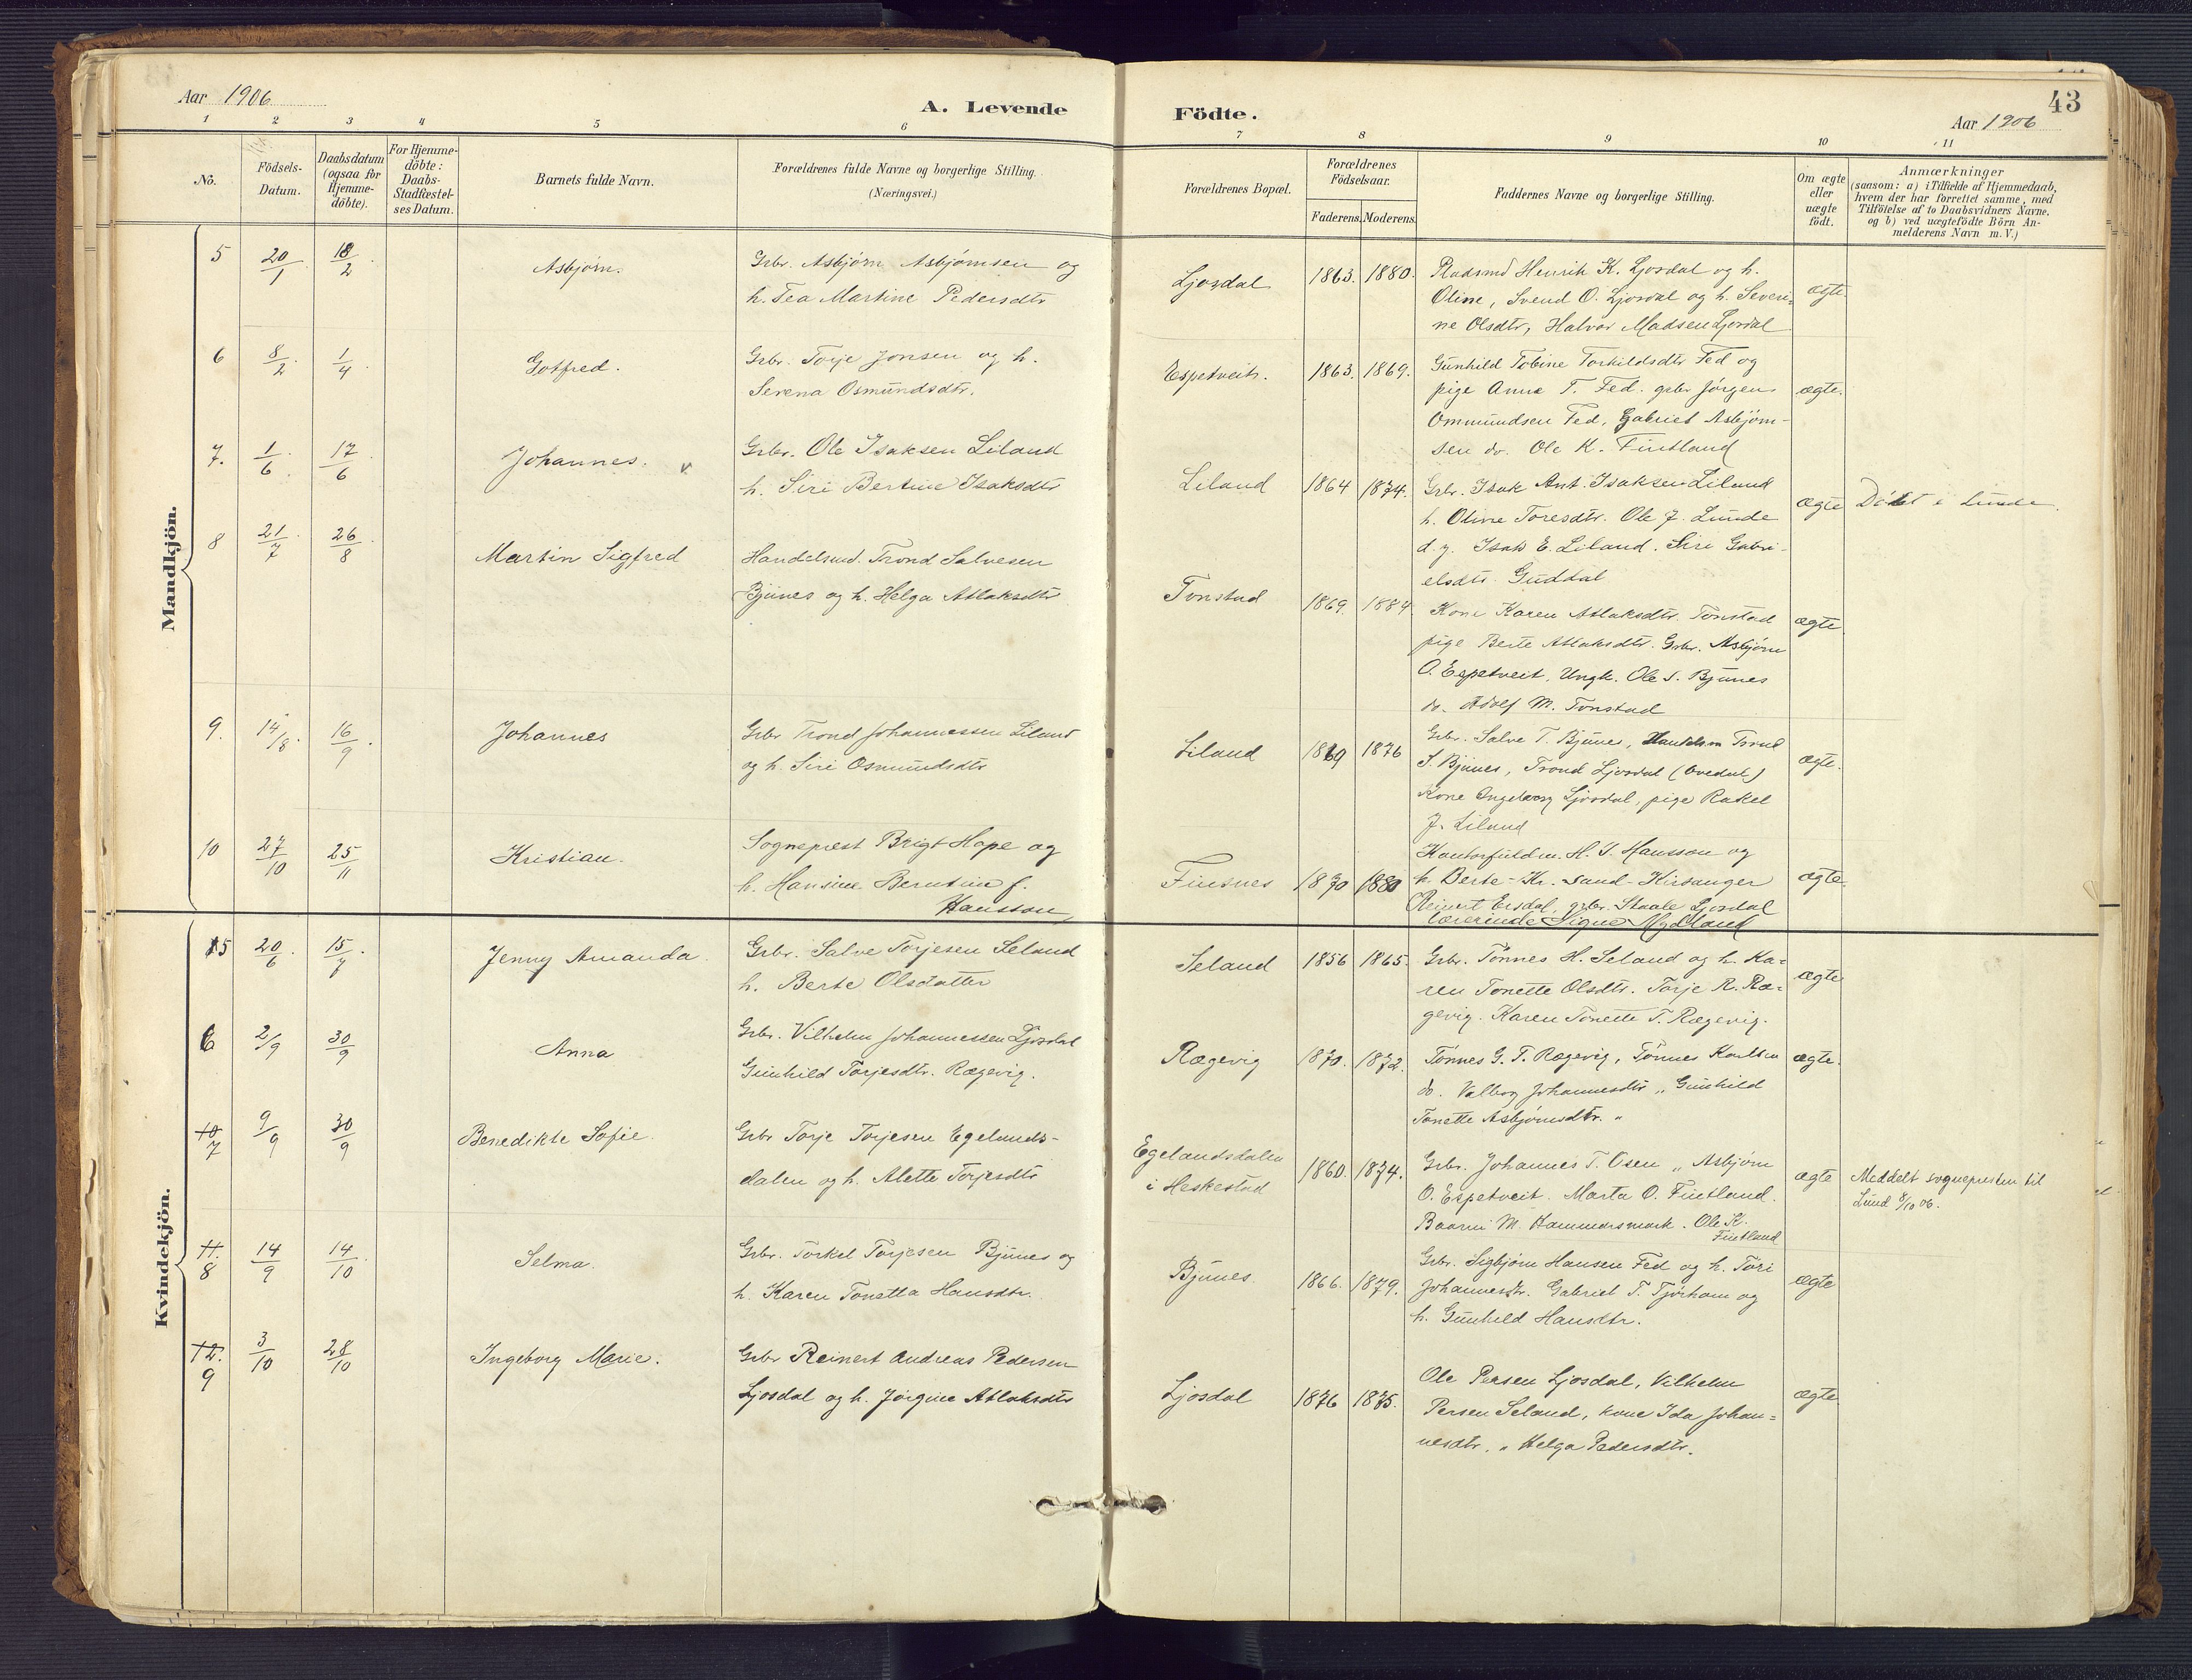 Aar 1906
A. Levende
Födte.
43
Aar 1906
1 2 3 4 5 6 7 8 9 10 11
No.
Födsels-
Datum.
Daabsdatum
(ogsaa for
Hjemme-
döbte).
For Hjemme-
döbte:
Daabs-
Stadfæstel-
ses Datum.
Barnets fulde Navn.
Forældrenes fulde Navne og borgerlige Stilling.
(Næringsvei.)
Forældrenes Bopæl.
Forældrenes
Födselsaar.
Faderens.
Moderens.
Faddernes Navne og borgerlige Stilling.
Om ægte
eller
uægte
födt.
Anmærkninger
(saasom: a) i Tilfælde af Hjemmedaab,
hvem der har forrettet samme, med
Tilföielse af to Daabsvidners Navne,
og b) ved uægtefödte Börn An-
melderens Navn m. V.)
Mandkjön.
5 20/1 18/2 Asbjørn.
Grbr. Asbjørn Asbjørnsen og
h. Tea Martine Pedersdtr
Ljosdal 1863. 1880.
Henrik K. Ljosdal og h.
Oline, Svend O. Ljosdal og h. Severi-
ne Olsdtr, Halvor Madsen Ljosdal
ægte.
6 8/2 1/4 Gotfred.
Grbr. Torje Jonsen og h.
Serena Osmundsdtr.
Espetveit. 1863. 1869.
Gunhild Tobine Torkildsdtr Fed og
pige Anna T. Fed. grbr Jørgen
Ommundsen Fed, Gabriel Asbjørn-
sen do. Ole K. Fintland
ægte.
7. 1/6 17/6 Johannes. v
Grbr. Ole Isaksen Liland
h. Siri Bertine Isaksdtr
Liland 1864 1874.
Grbr. Isak Ant. Isaksen Liland
h. Oline Toresdtr. Ole J. Lunde
d. y. Isak E. Liland. Siri Gabri-
elsdtr. Guddal
ægte
Døbt i Lunde.
8 21/7 26/8 Martin Sigfred
Handelsmd. Trond Salvesen
Bjunes og h. Helga Atlaksdtr
Tonstad 1869. 1884
Kone Karen Atlaksdtr. Tonstad
pige Berte Atlaksdtr. Grbr. Asbjørn
O. Espetveit. Ungk. Ole S. Bjunes
do. Adolf M. Tonstad
ægte
9. 14/8. 16/9. Johannes
Grbr Trond Johannessen Liland
og h. Siri Osmundsdtr
Liland 1869 1876
Grbr. Salve T. Bjunes, Handelsm Trond
S. Bjunes, Trond Ljosdal (Ovedal)
Kone Ingeborg Ljosdal, pige Rakel
J. Liland
ægte.
10 27/10 25/11 Kristian.
Sogneprest Brigt Hope og
h. Hansine Berntine f.
Hansson,
Finsnes 1870 1880
Kontorfuldm. H. S. Hansson og
h. Berte-Kr. Sand-Kirsanger
Reinert Ersdal, grbr. Staale Ljosdal
lærerinde Signe Mydland
ægte.
Kvindekjön.
5 20/6 15/7 Jenny Amanda.
Grbr. Salve Torjesen Seland
h. Berte Olsdatter
Seland 1856 1865.
Grbr. Tönnes H. Seland og h. Ka-
ren Tonette Olsdtr. Torje R. Ræ-
gevig. Karen Tonette T. Rægevig.
ægte
6 2/9 30/9 Anna
Grbr. Vilhelm Johannessen Ljosdal
Gunhild Torjesdtr. Rægevig.
Rægevig 1870. 1872.
Tönnes G. T. Rægevig, Tönnes Karlsen
do. Valborg Johannesdtr " Gunhild
Tonette Asbjørnsdtr. "
ægte.
10 7 9/9 30/9 Benedikte Sofie.
Grbr Torje Torjesen Egelands-
dalen og h. Alette Torjesdtr
Egelandsdalen
i Heskestad 1860. 1874.
Grbr. Johannes T. Osen " Asbjørn
O. Espetveit. Marta O. Fintland.
M. Hammersmark. Ole K.
Fintland
ægte
Meddelt sognepresten til
Lund 8/10 06.
11. 8 14/9 14/10. Selma.
Grbr. Torkel Torjesen Bjunes og
h. Karen Tonetta Hansdtr.
Bjunes. 1866. 1879.
Grbr. Sigbjørn Hansen Fed og h. Tori
Johannesdtr. Gabriel T. Tjørhom og
h. Gunhild Hansdtr.
ægte
12. 9 3/10 28/10 Ingeborg Marie.
Grbr Reinert Andreas Pedersen
Ljosdal og h. Jørgine Atlaksdtr
Ljosdal 1876 1875.
Ole Persen Ljosdal, Vilhelm
Persen Seland, kone Ida Johan-
nesdtr. " Helga Pedersdtr.
ægte